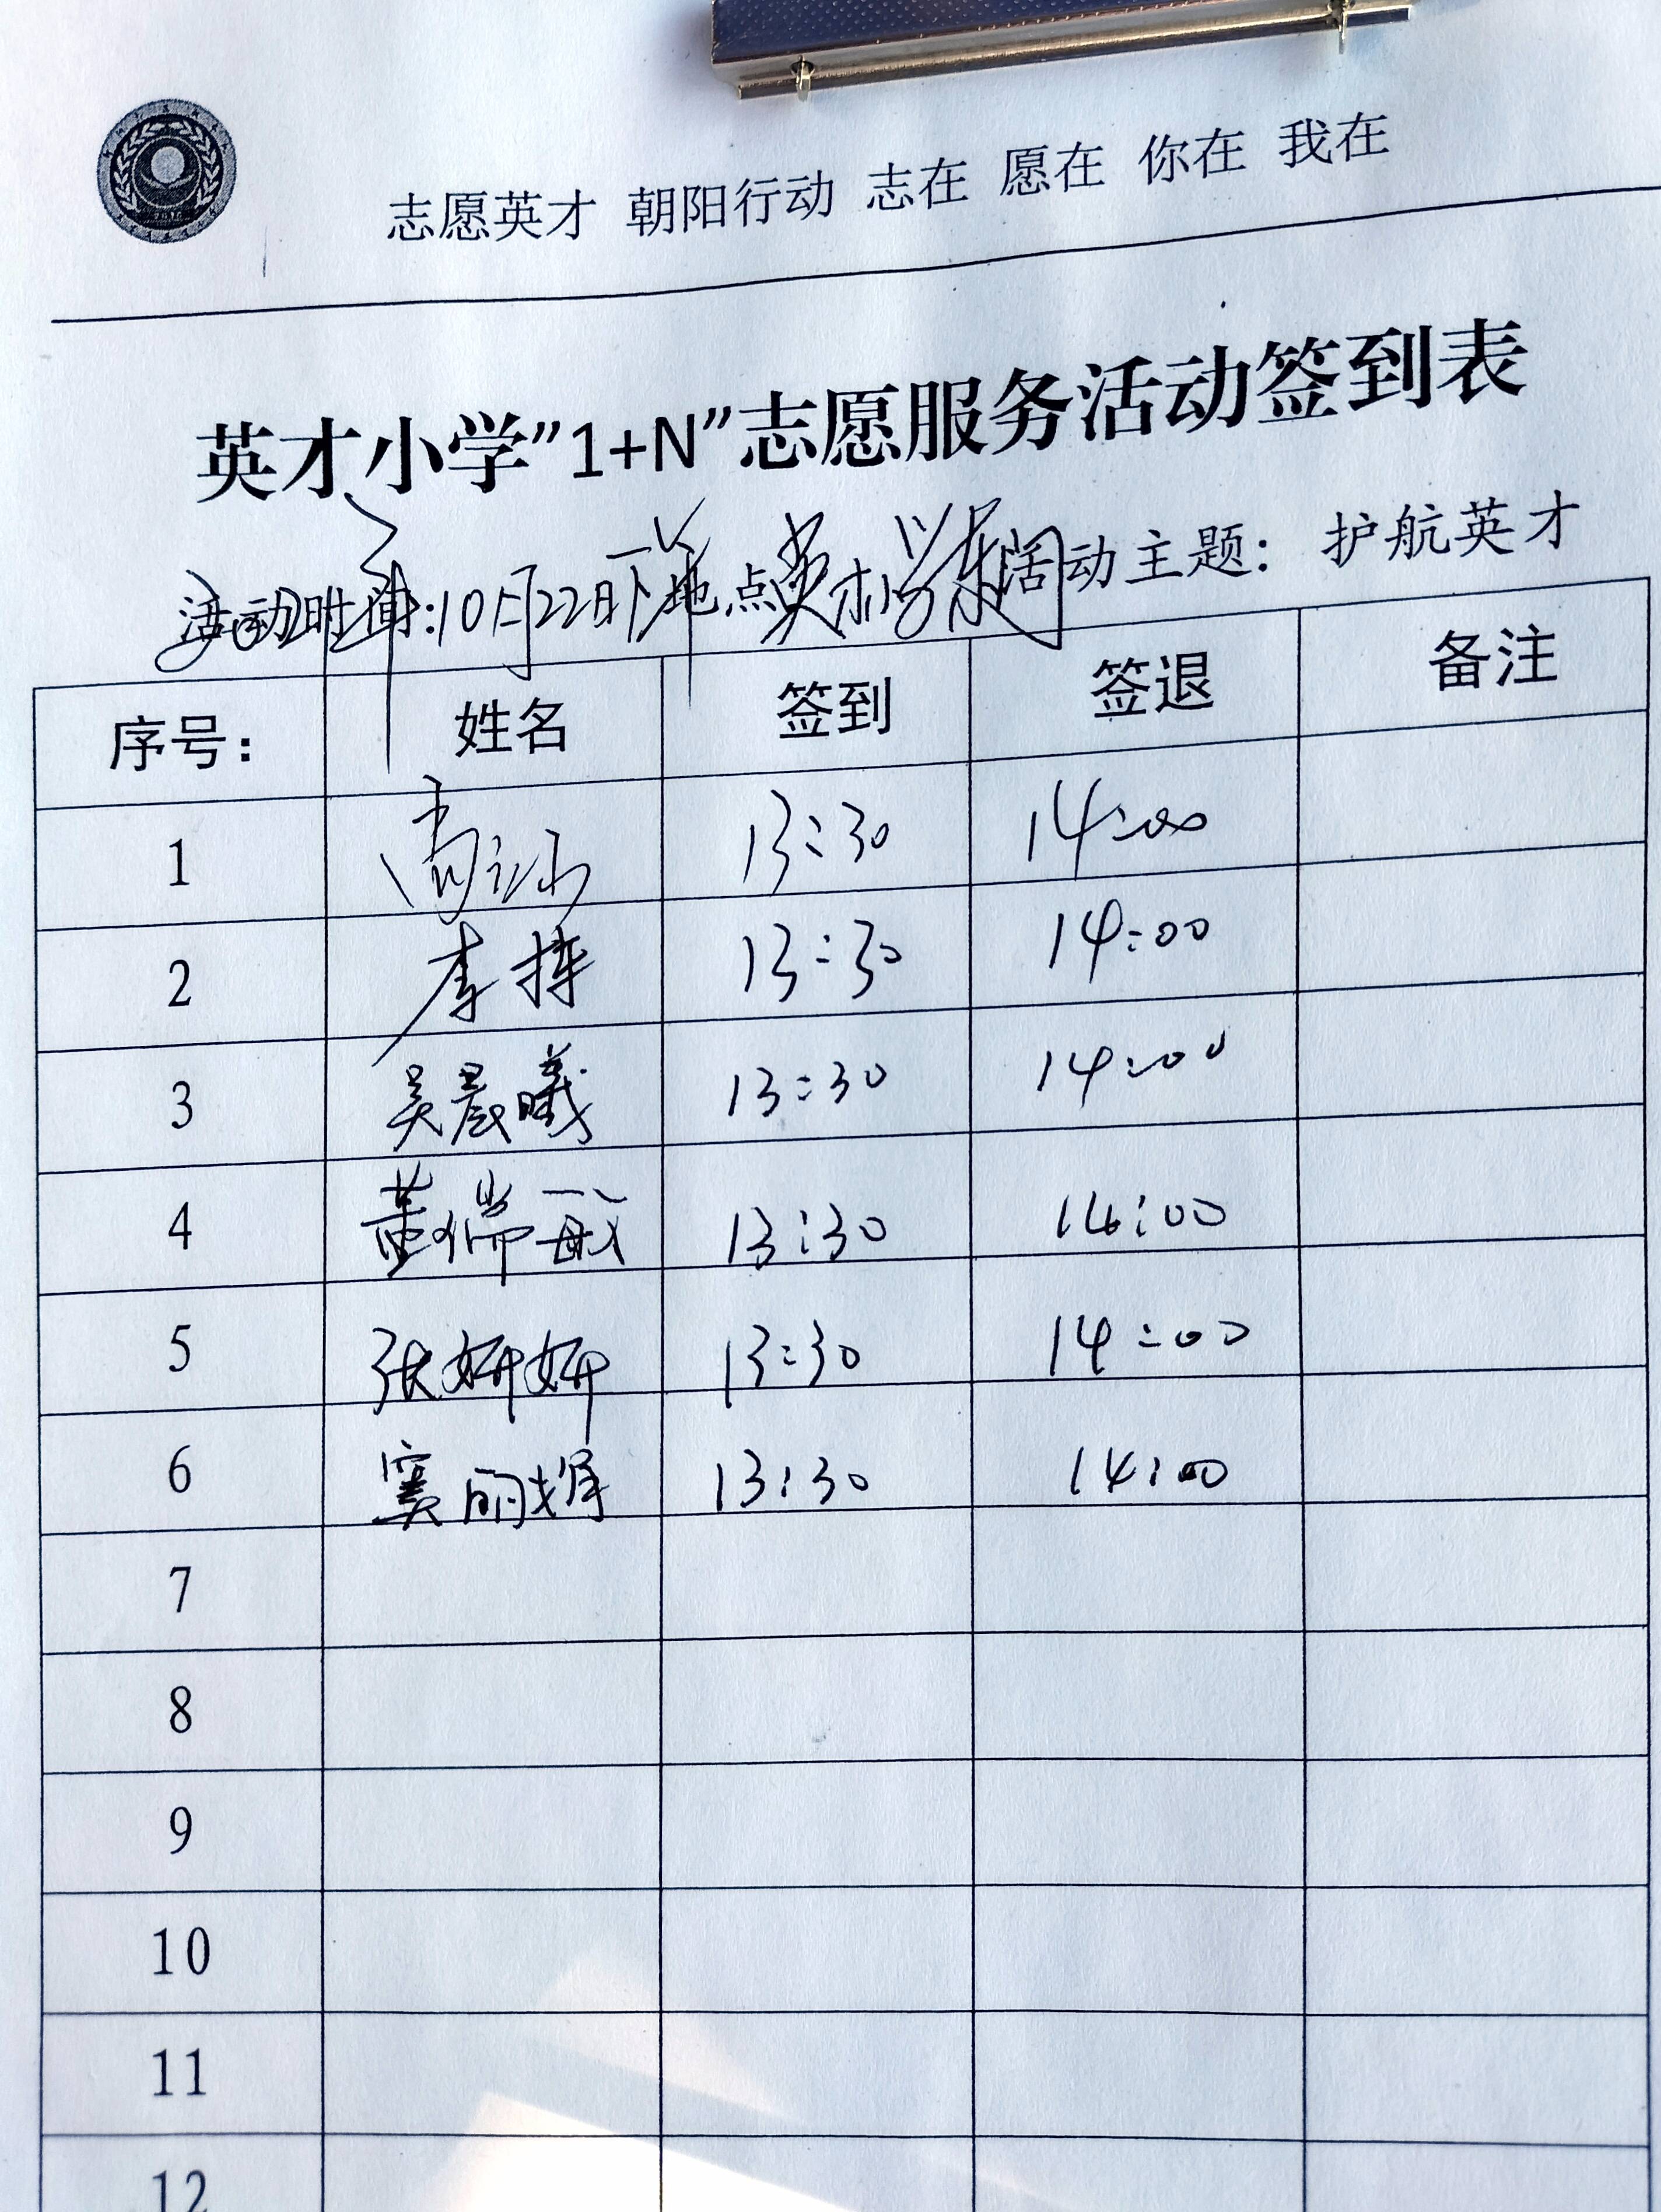 志愿英才 朝阳行动 志在 愿在 你在 我在
英才小学"1+N"志愿服务活动签到表
活动时间:10月22日下午 地点 英才小学东门 活动主题: 护航英才
序号: 姓名 签到 签退 备注
1 13:30 14:00
2 李 13:30 14:00
3 吴晨曦 13:30 14:00
4 董瑞敏 13:30 14:00
5 张妍妍 13:30 14:00
6 窦丽娟 13:30 14:00
7
8
9
10
11
12